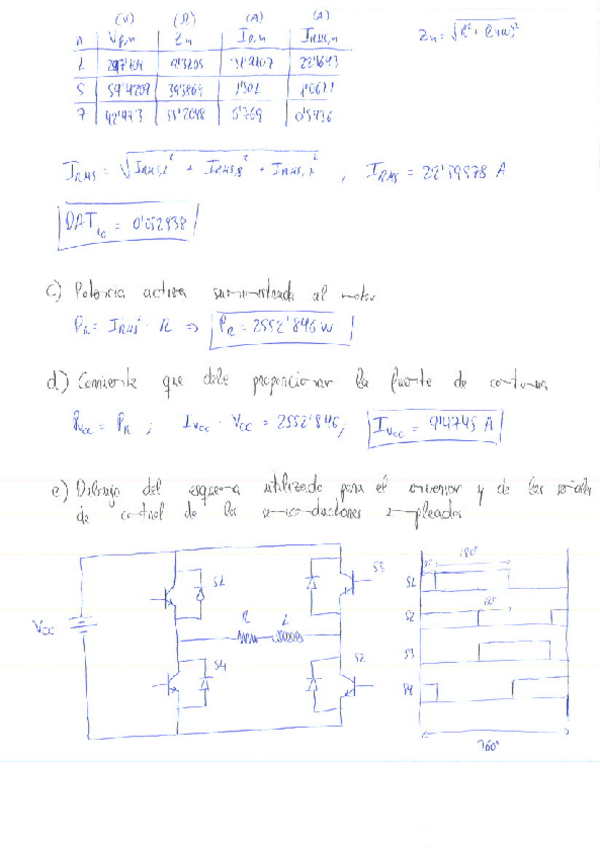 (V) (Ω) (A) (A)
n Vp,n Zn Ip,n IRMS,n Zn = √R² + (Lnω)²
1
5 59'4209 39'5869 1'501 1'0611
7 0'5436
IRMS = √IRMS,1² + IRMS,5² + IRMS,7² , IRMS = 22'59978 A
DATic = 0'052938
c) Potencia activa suministrada al motor
PR = IRMS² · R ⇒ PR = 2552'846 W
d.) Corriente que debe proporcionar la fuente de continua
PVCC = PR ; IVCC · VCC = 2552'846; IVCC = 9'4745 A
e) Dibujo del esquema utilizado para el inversor y de las señales
de control de los semiconductores empleados
S1 S3 180º
VCC R L S1
S2 60º
S4 S2 S3
S4
360º